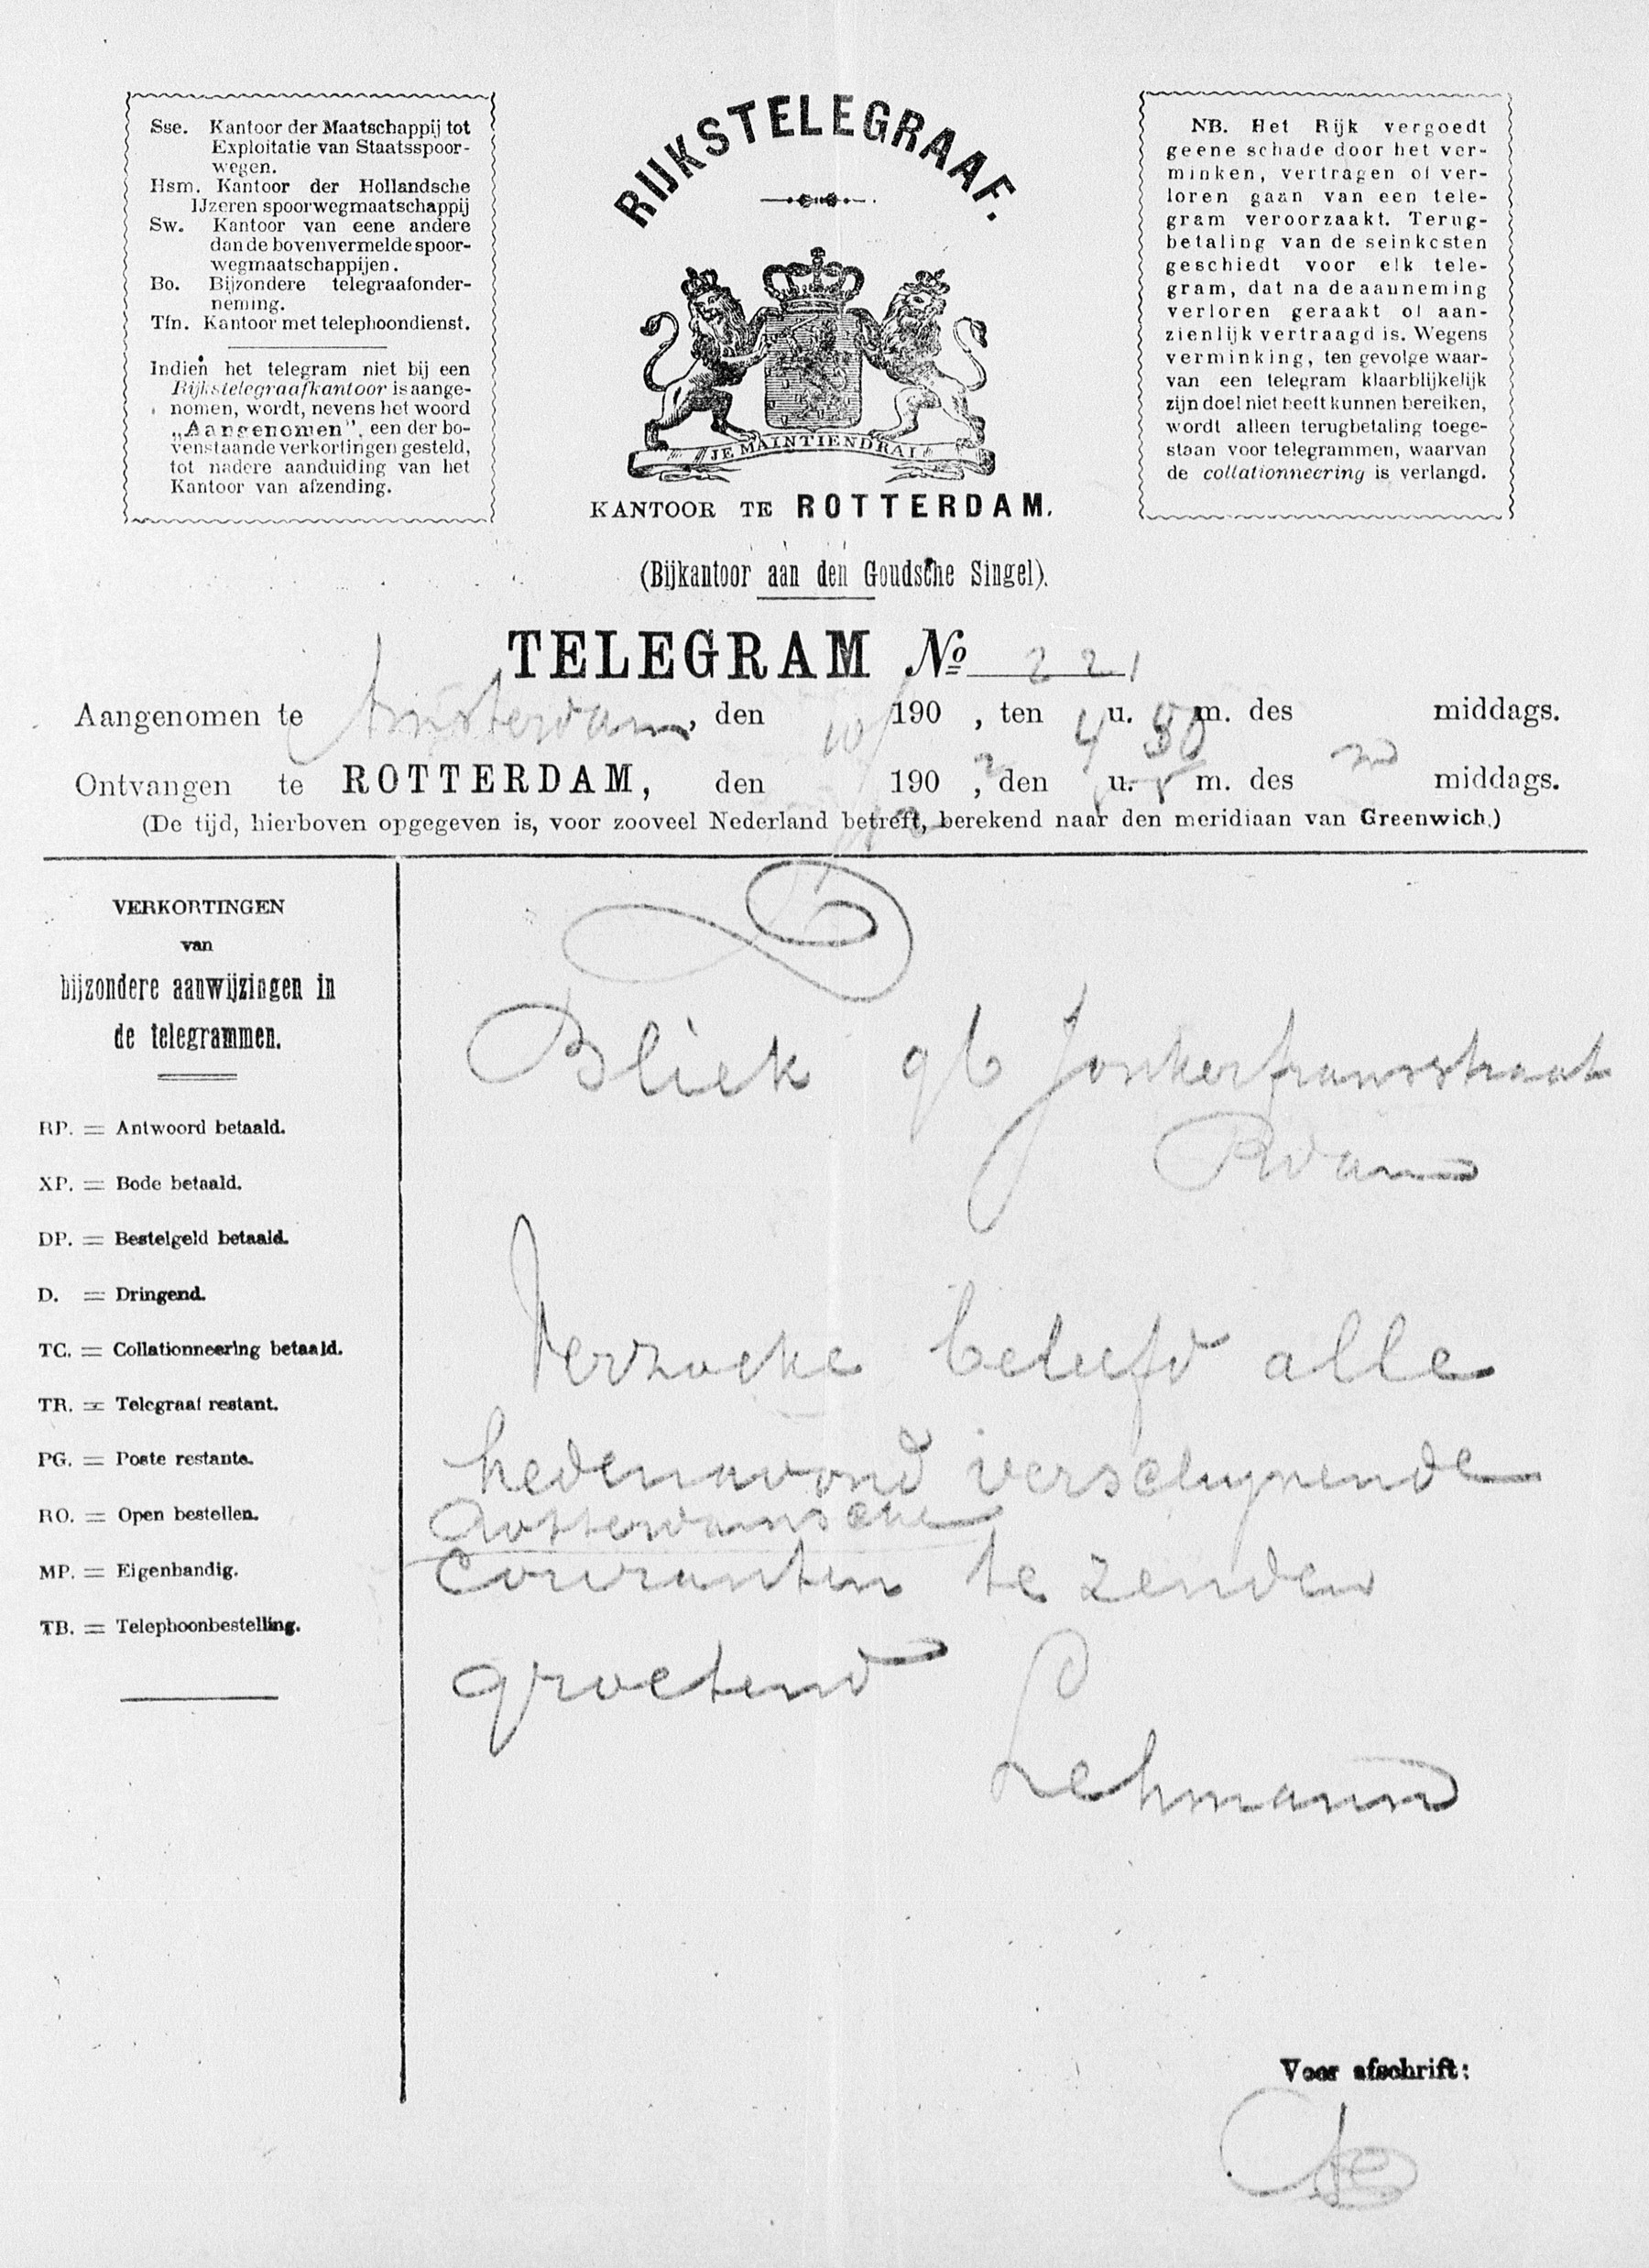 Sse. Kantoor der Maatschappij tot
Exploitatie van Staatsspoor-
wegen.
Hsm. Kantoor der Hollandsche
IJzeren spoorwegmaatschappij
Sw. Kantoor van eene andere
dan de bovenvermelde spoor-
wegmaatschappijen.
Bo. Bijzondere telegraafonder-
neming.
Tfn. Kantoor met telephoondienst.
Indien het telegram niet bij een
Rijkstelegraafkantoor is aange-
nomen, wordt, nevens het woord
„Aangenomen", een der bo-
venstaande verkortingen gesteld,
tot nadere aanduiding van het
Kantoor van afzending.
RIJKSTELEGRAAF.
JE MAINTIENDRAI
KANTOOR TE ROTTERDAM.
(Bijkantoor aan den Goudsche Singel).
NB. Het Rijk vergoedt
geene schade door het ver-
minken, vertragen of ver-
loren gaan van een tele-
gram veroorzaakt. Terug-
betaling van de seinkosten
geschiedt voor elk tele-
gram, dat na de aanneming
verloren geraakt of aan-
zienlijk vertraagd is. Wegens
verminking, ten gevolge waar-
van een telegram klaarblijkelijk
zijn doel niet heeft kunnen bereiken,
wordt alleen terugbetaling toege-
staan voor telegrammen, waarvan
de collationneering is verlangd.
TELEGRAM No 221
Aangenomen te Amsterdam, den 10/ 190 , ten 4 u. 50 m. des middags.
Ontvangen te ROTTERDAM, den 190 2, den u. m. des n middags.
(De tijd, hierboven opgegeven is, voor zooveel Nederland betreft, berekend naar den meridiaan van Greenwich.)
VERKORTINGEN
van
bijzondere aanwijzingen in
de telegrammen.
RP. = Antwoord betaald.
XP. = Bode betaald.
DP. = Bestelgeld betaald.
D. = Dringend.
TC. = Collationneering betaald.
TR. = Telegraaf restant.
PG. = Poste restante.
RO. = Open bestellen.
MP. = Eigenhandig.
TB. = Telephoonbestelling.
Bliek 96 Jonkerfransstraat
Rdam
Verzoeke beleefd alle
hedenavond verschynende
Rotterdamsche
Couranten te zenden
groetend
Lehmann
Voor afschrift: